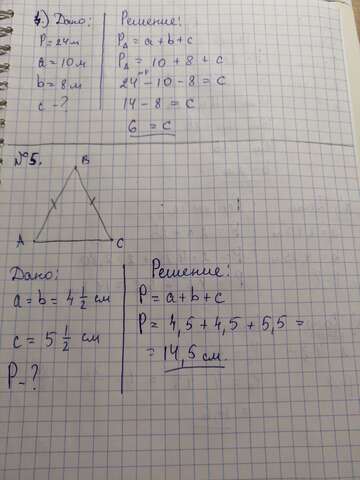 4.) Дано:
P=24м
a=10м
b=8м
c-?
Решение:
P△=a+b+c
P△=10+8+c
24-10-8=c
14-8=c
6=c
№5.
B
A
C
Дано:
a=b=4 1/2 см
c=5 1/2 см
P-?
Решение:
P=a+b+c
P=4,5+4,5+5,5=
=14,5см.